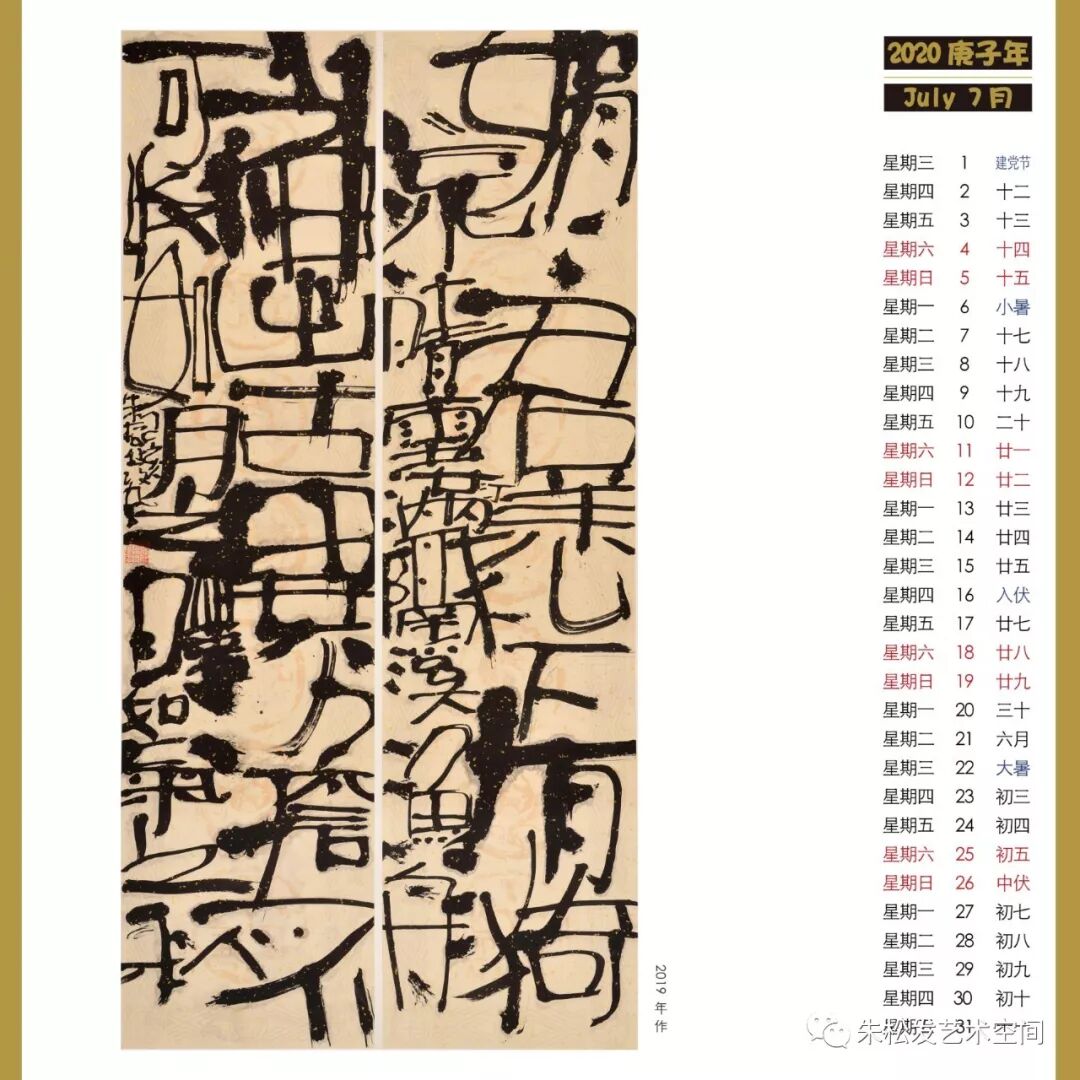 2020 庚子年
July 7月
娟娟群松下有漪
流晴雪滿汀隔溪漁舟
神出古異澹不
可收如月之曙如氣之秋
2019 年 作
星期三 1 建党节
星期四 2 十二
星期五 3 十三
星期六 4 十四
星期日 5 十五
星期一 6 小暑
星期二 7 十七
星期三 8 十八
星期四 9 十九
星期五 10 二十
星期六 11 廿一
星期日 12 廿二
星期一 13 廿三
星期二 14 廿四
星期三 15 廿五
星期四 16 入伏
星期五 17 廿七
星期六 18 廿八
星期日 19 廿九
星期一 20 三十
星期二 21 六月
星期三 22 大暑
星期四 23 初三
星期五 24 初四
星期六 25 初五
星期日 26 中伏
星期一 27 初七
星期二 28 初八
星期三 29 初九
星期四 30 初十
星期五 31 十一
朱松发艺术空间